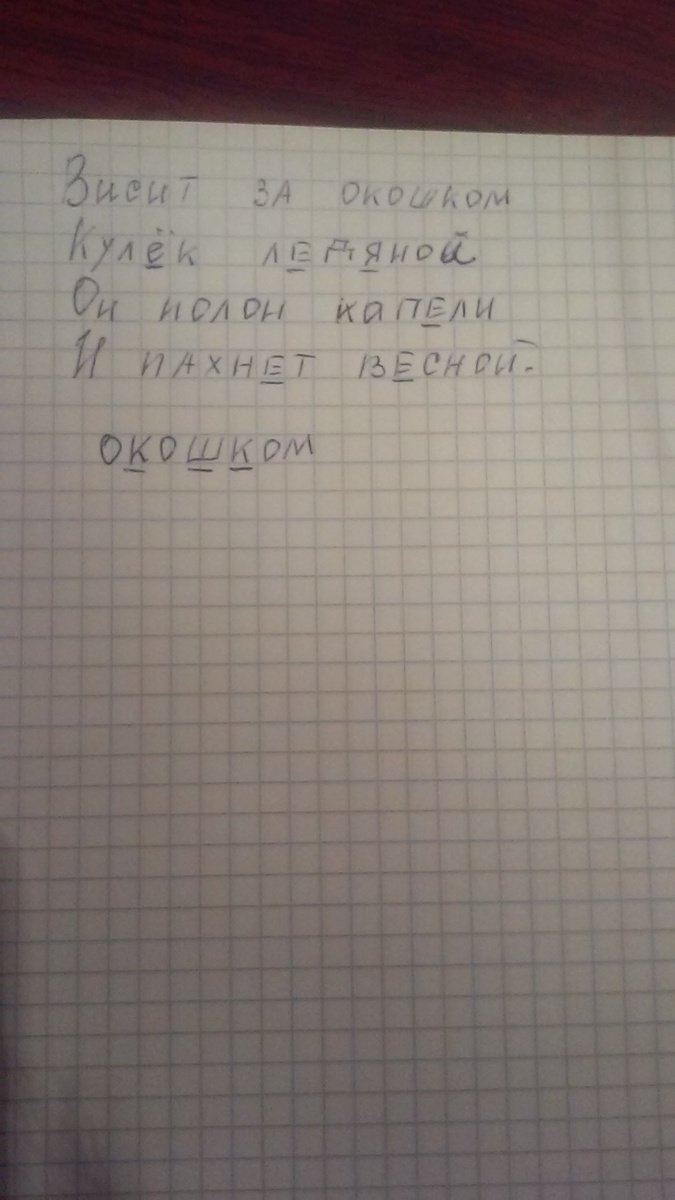 Висит за окошком
Кулёк ледяной
Он полон капели
И пахнет весной.
окошком